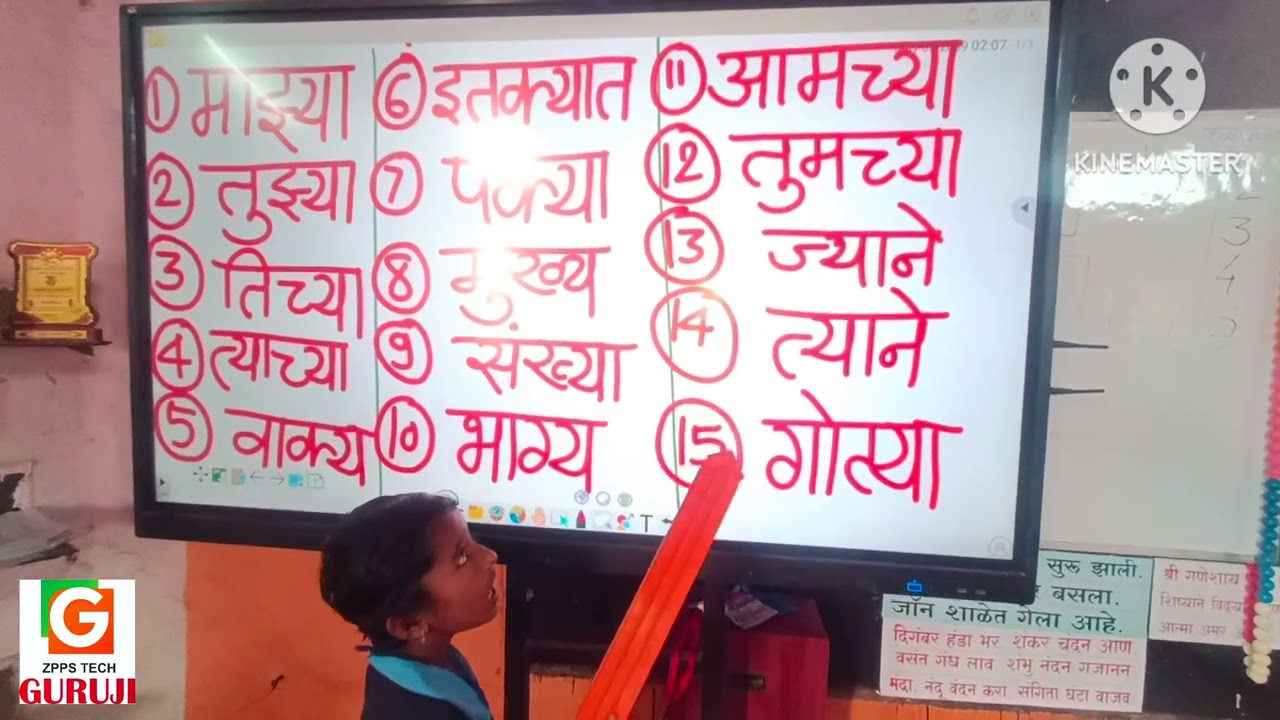 02:07 1/1
1 माझ्या
2 तुझ्या
3 तिच्या
4 त्याच्या
5 वाक्य
6 इतक्यात
7 पक्या
8 मुख्य
9 संख्या
10 भाग्य
11 आमच्या
12 तुमच्या
13 ज्याने
14 त्याने
15 गोत्या
K
KINEMASTER
2
3
4
सुरू झाली.
बसला.
जॉन शाळेत गेला आहे.
दिगंबर हंडा भर शंकर चंदन आण
वसंत गंध लाव शंभु नंदन गजानन
मंदा, नंदु वंदन करा संगिता घंटा वाजव
श्री गणेशाय
शिष्याने
आत्मा अमर
G
ZPPS TECH
GURUJI